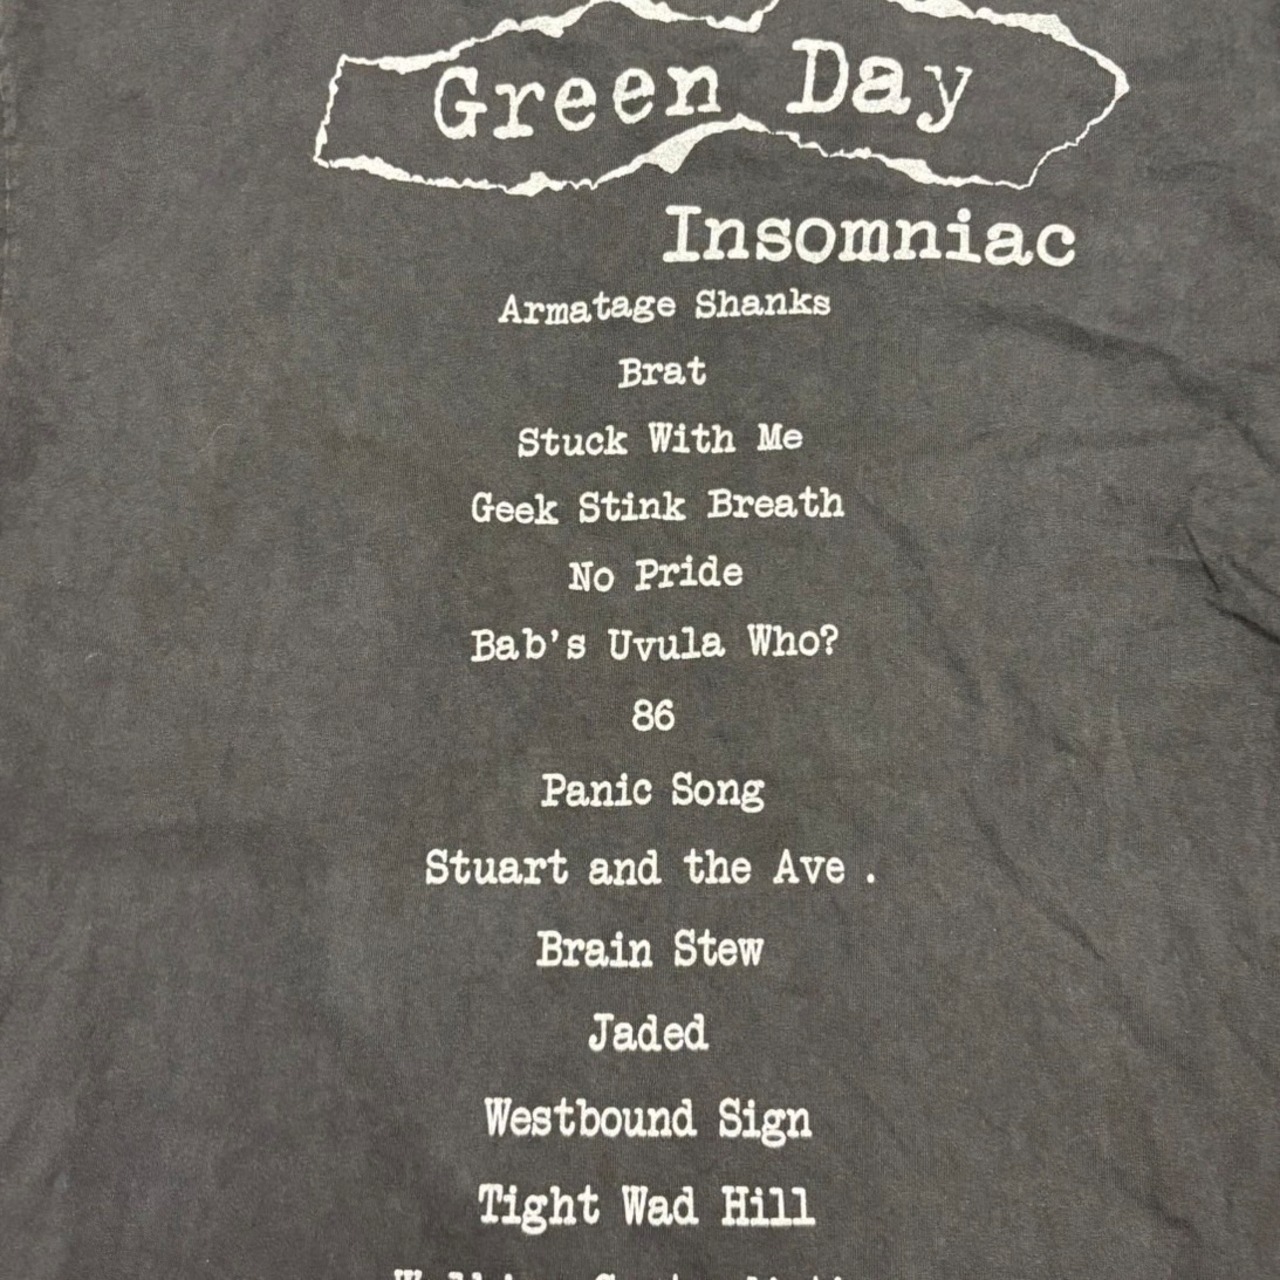 Green Day
Insomniac
Armatage Shanks
Brat
Stuck With Me
Geek Stink Breath
No Pride
Bab's Uvula Who?
86
Panic Song
Stuart and the Ave .
Brain Stew
Jaded
Westbound Sign
Tight Wad Hill